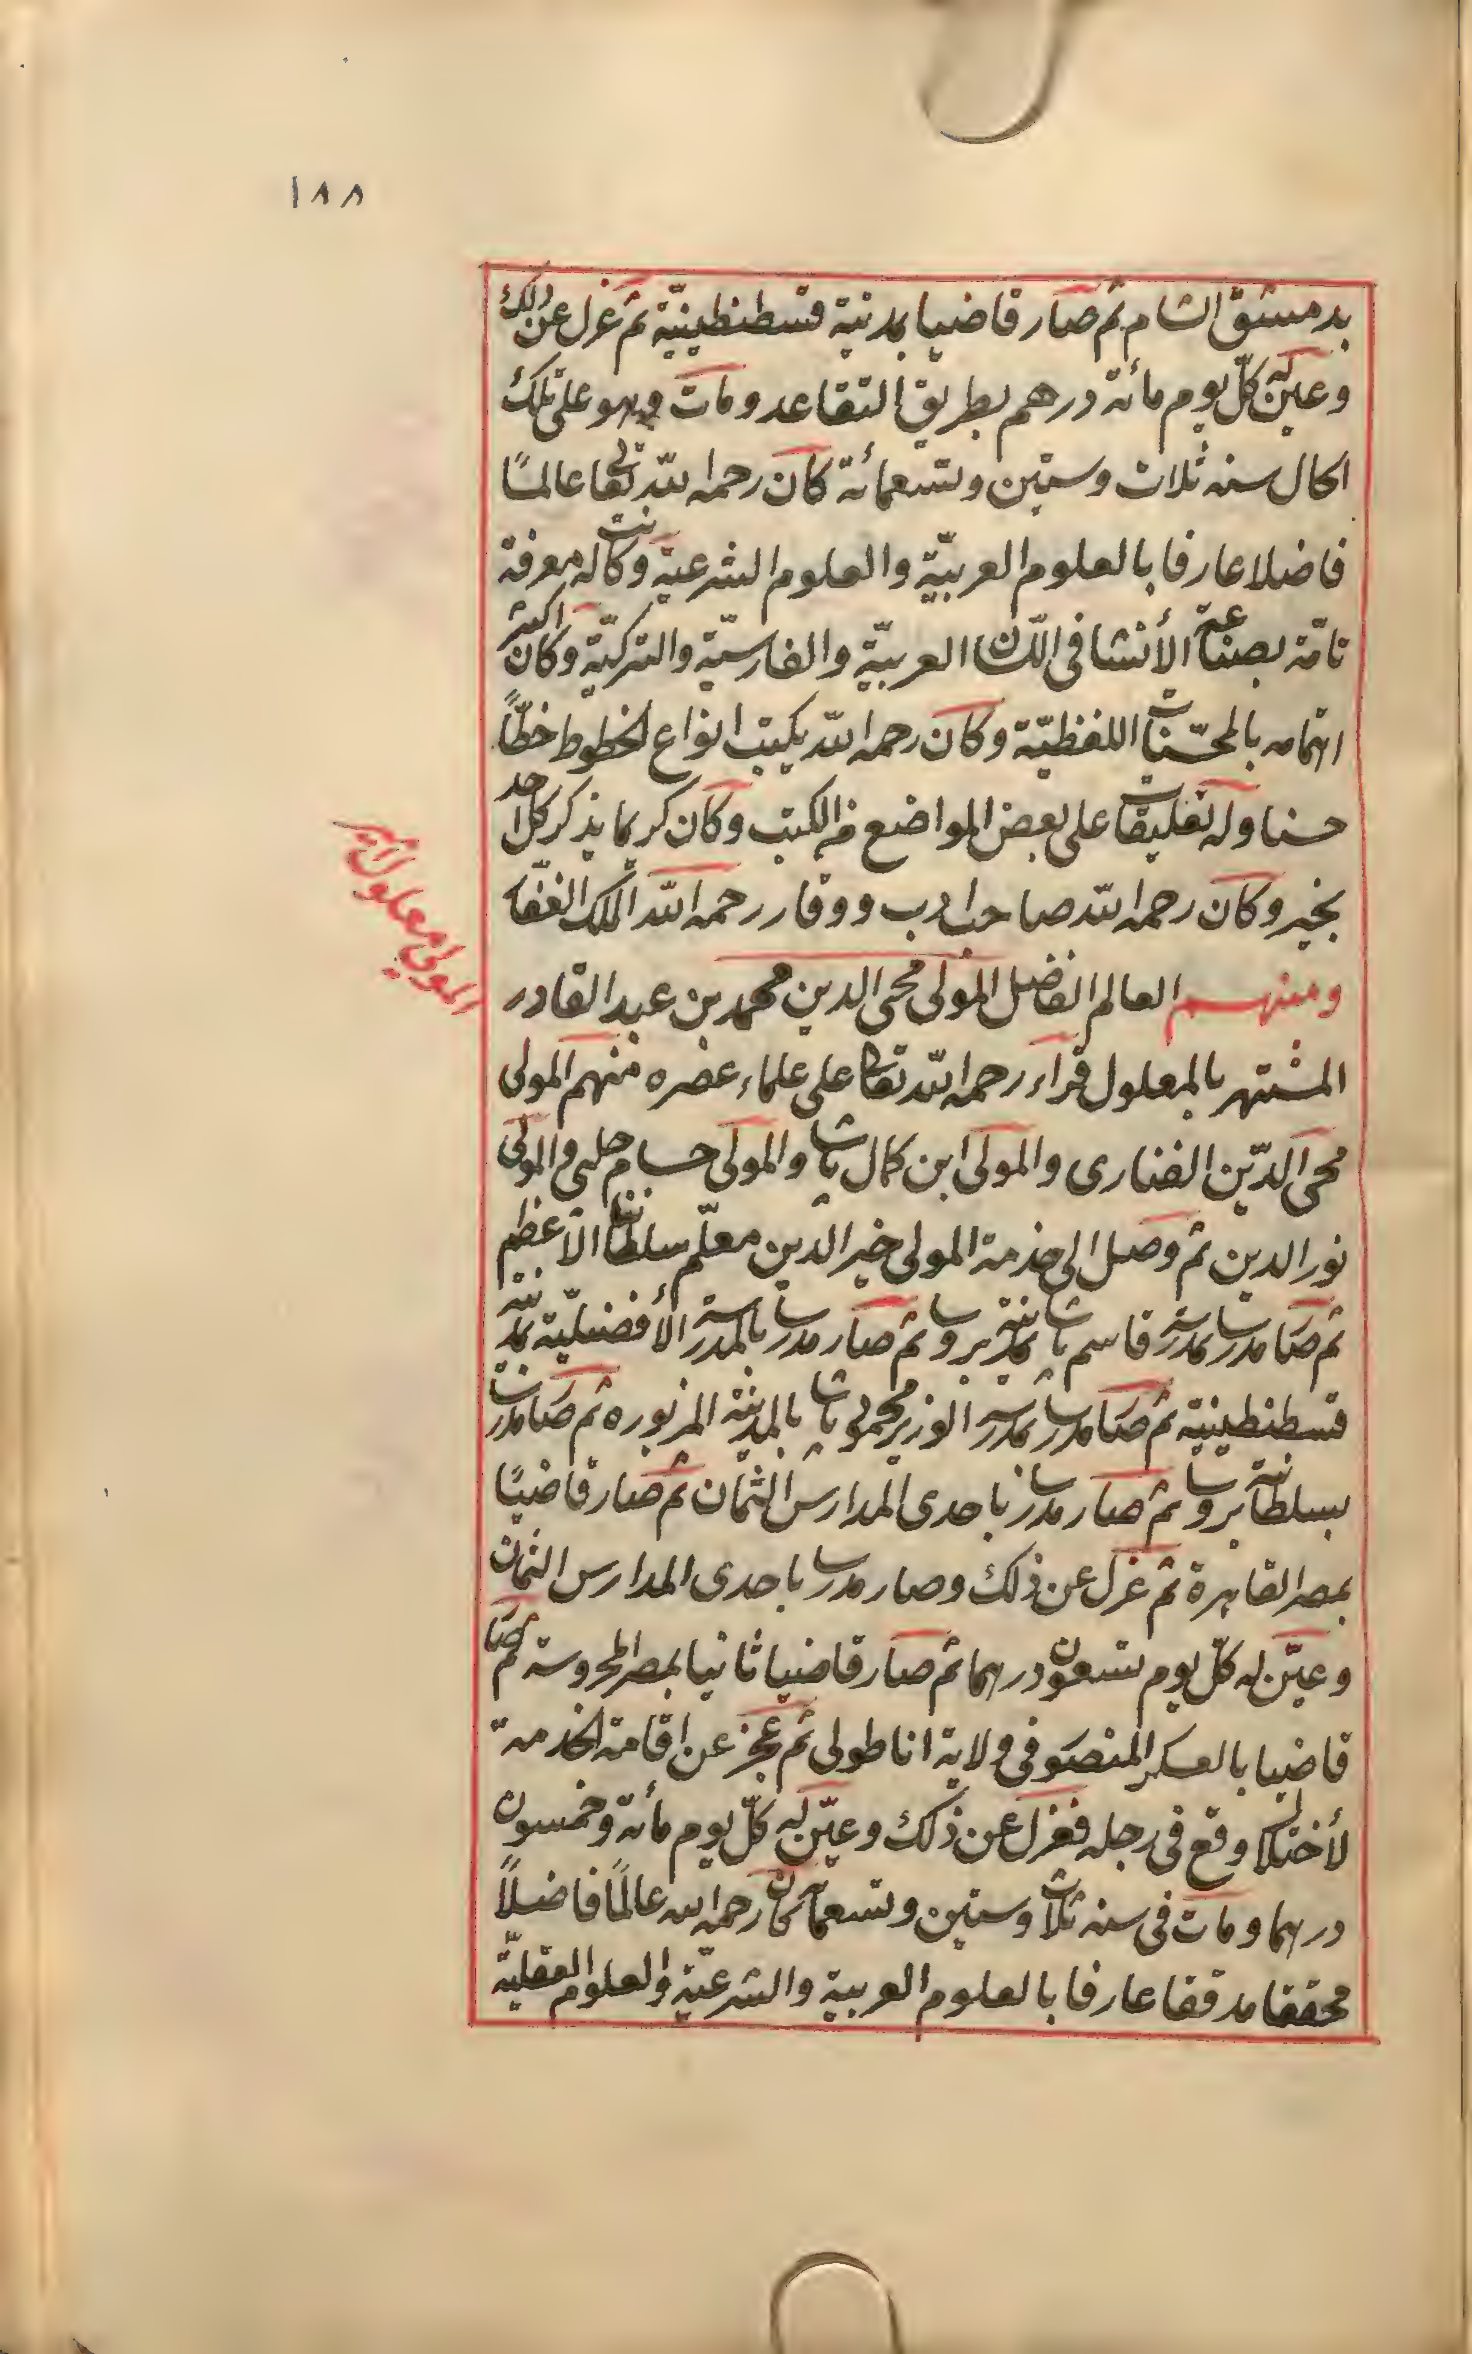 ١٨٨
بدمشق الشام ثم صار قاضيا بمدينة قسطنطينيّة ثم عزل عن ذلك
وعيّن له كلّ يوم مائة درهم بطريق التقاعد ومات وهو على تلك
الحال سنه ثلاث وستين وتسعمائة كان رحمه اللّه تعالى عالمًا
فاضلا عارفا بالعلوم العربيّة والعلوم الشرعية وكانت له معرفة
تامّة بصناعة الأنشا فى اللسان العربيّة والفارسيّة والتركيّة وكان اكثر
اهتمامه بالمحسّنات اللفظيّة وكان رحمه اللّه يكتب انواع الخطوط خطّاً
حسنا وله تعليقات على بعض المواضع من الكتب وكان كريما يذكر كل احد
بخير وكان رحمه اللّه صاحب ادب ووقار رحمه اللّه الملك الغفار
ومنهم العالم الفاضل المولى محى الدين محمد بن عبد القادر
المولى معلول امير
المشتهر بالمعلول قراء رحمه اللّه تعالى على علماء عصره منهم المولى
محى الدّين الفنارى والمولى ابن كمال پاشا والمولى حسام چلبي والمولى
نور الدين ثم وصل الى خدمة المولى خير الدين معلّم سلطاننا الأعظم
ثم صار مدرسا بمدرسة قاسم پاشا بمدينة بروسا ثم صار مدرسا بالمدرسة الأفضليّة بمدينة
قسطنطينية ثم صار مدرسا بمدرسة الوزير محمود پاشا بالمدينة المزبوره ثم صار مدرسا
بسلطانية بروسا ثم صار مدرسا باحدى المدارس الثمان ثم صار قاضيًا
بمصر القاهرة ثم عزل عن ذلك وصار مدرسا باحدى المدارس الثمان
وعيّن له كلّ يوم تسعون درهما ثم صار قاضيا ثانيا بمصر المحروسة ثم صار
قاضيا بالعسكر المنصور فى ولاية اناطولى ثم عجز عن اقامة الخدمة
لأختلال وقع فى رجله فعزل عن ذلك وعيّن له كلّ يوم مائة وخمسون
درهما ومات فى سنه ثلاث وستين وتسعمائة كان رحمه الله عالمًا فاضلاً
محققا مدققا عارفا بالعلوم العربية والشرعيّة والعلوم العقليّة